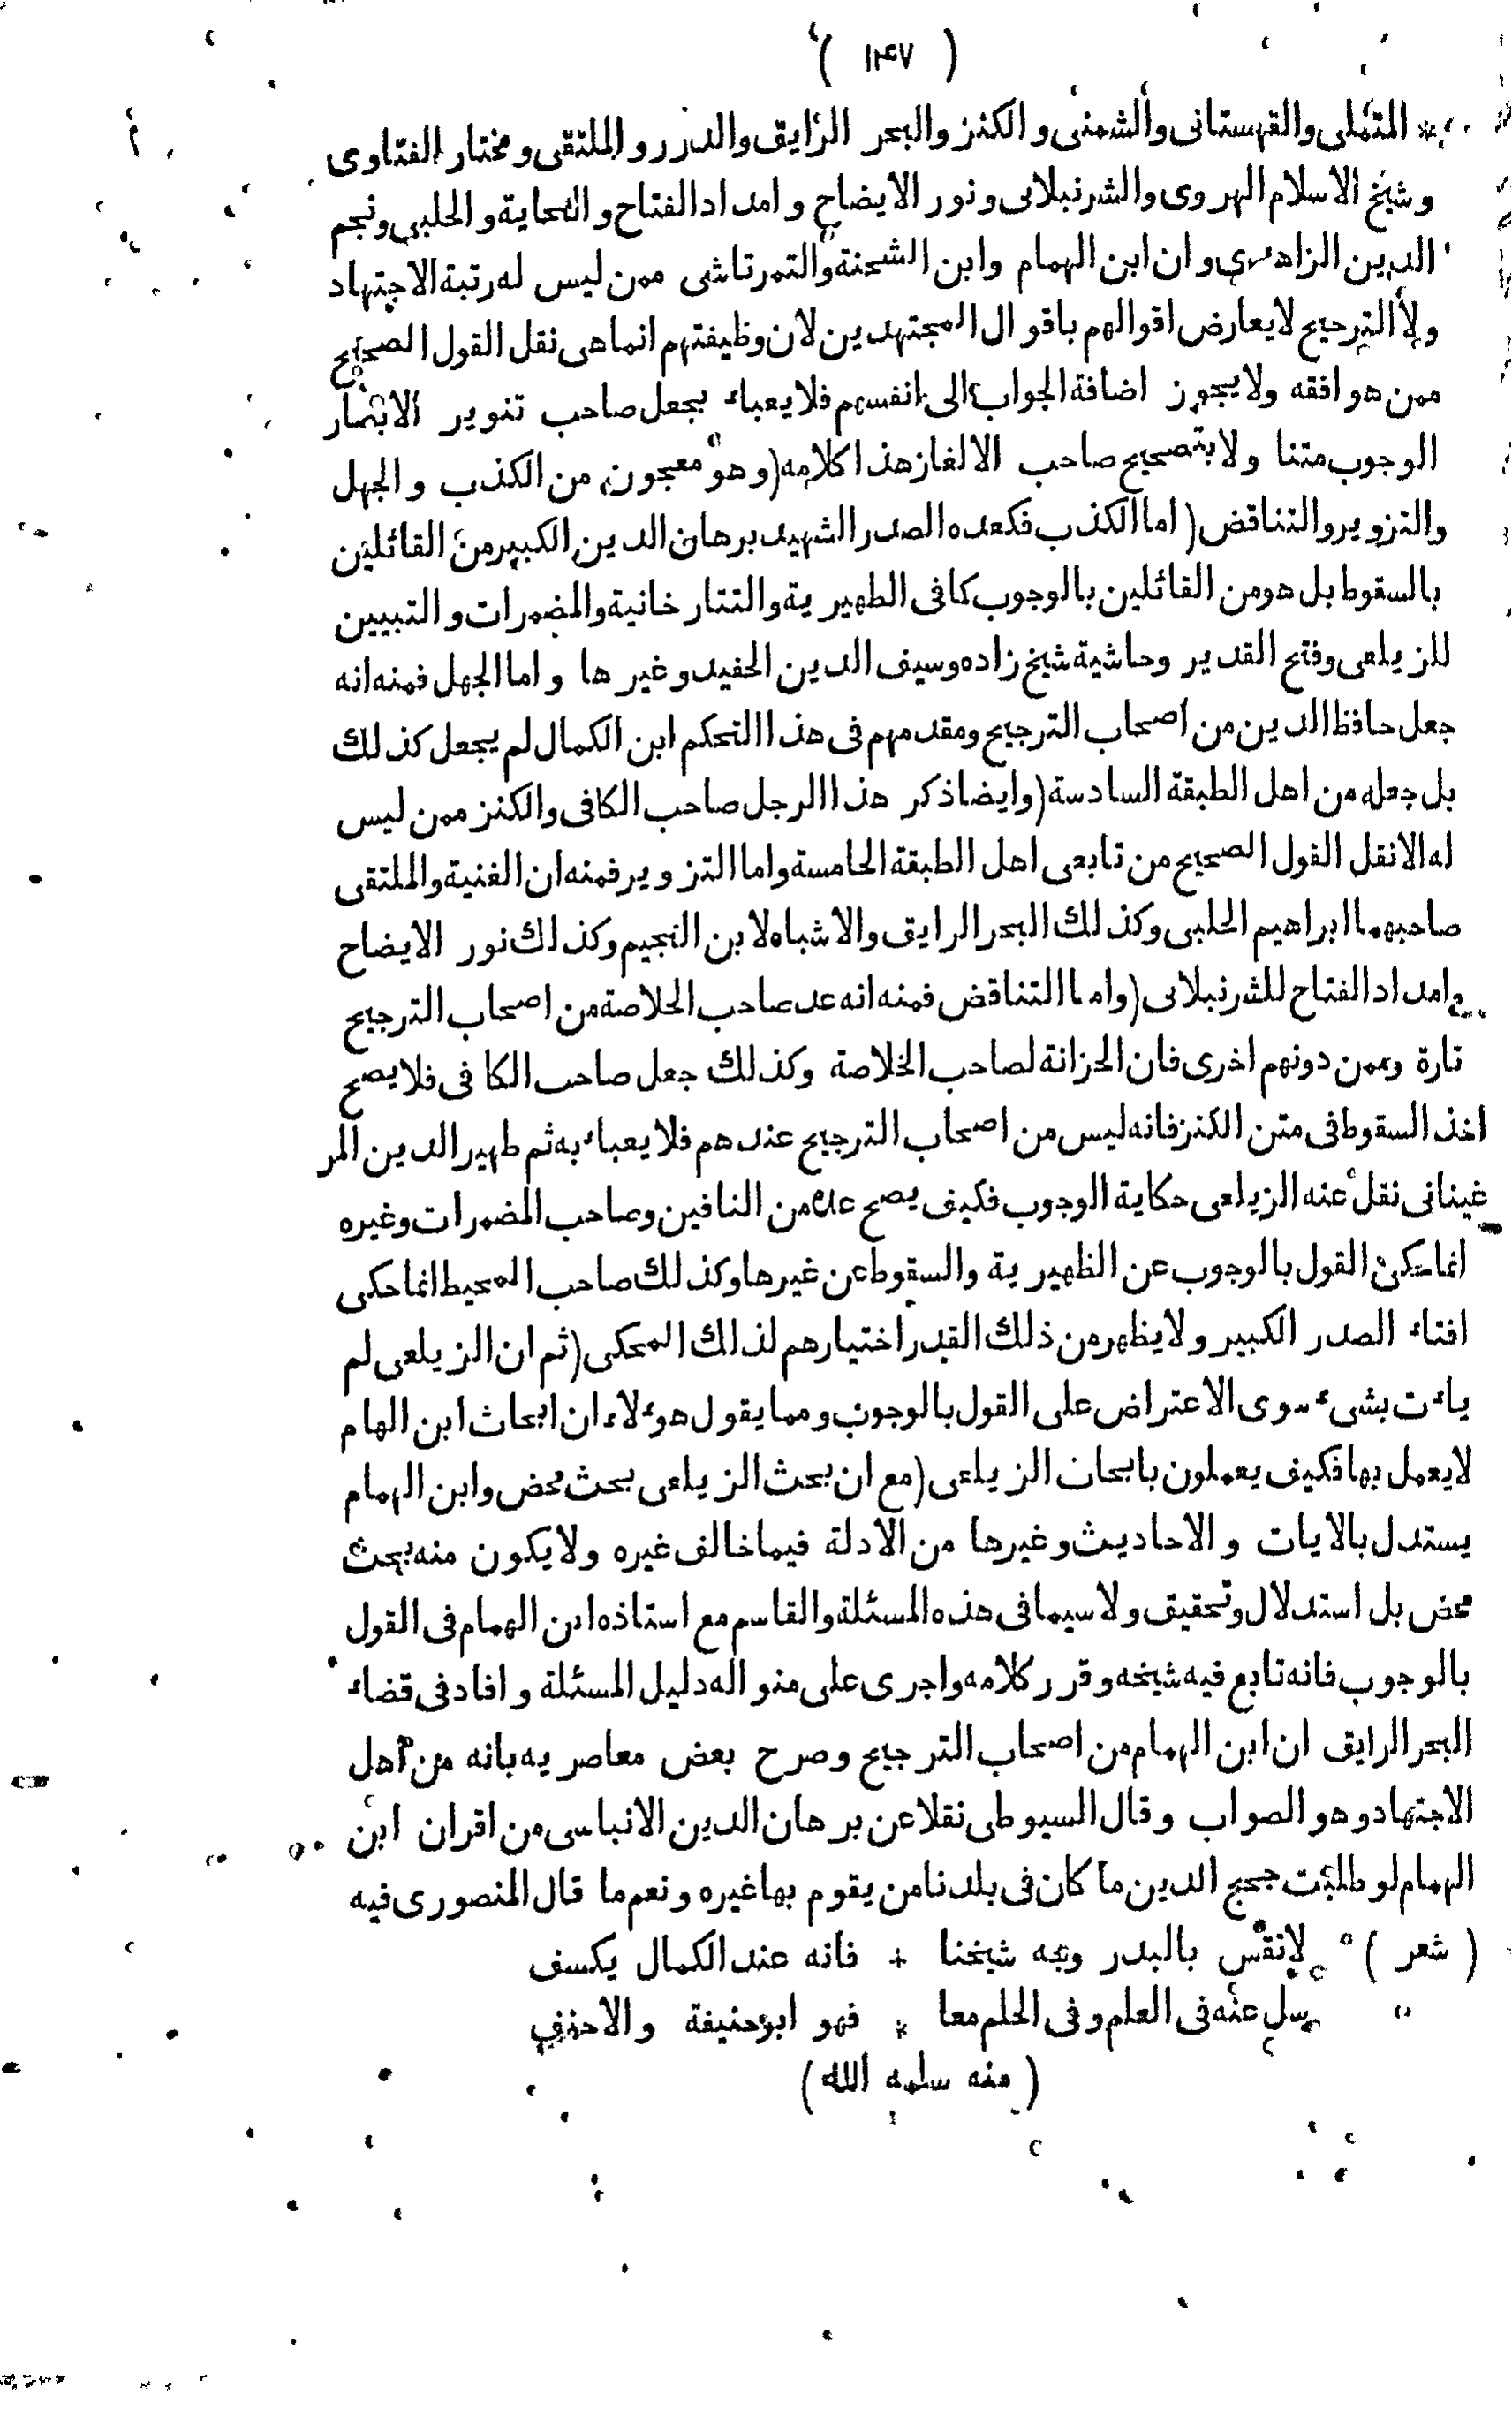 ( ١٤٧ )
* المتملى والقهستانى والشمنى و الكنز والبحر الرايق والدرر و الملتقى و مختار الفتاوى
و شيخ الاسلام الهروى والشرنبلالى و نور الايضاح و امداد الفتاح و الصحاية و الحلبى و نجم
الدين الزاهدى و ان ابن الهمام وابن الشحنة والتمرتاشى ممن ليس له رتبة الاجتهاد
ولا الترجيح لا يعارض اقوالهم باقوال المجتهدين لان وظيفتهم انما هى نقل القول الصحيح
ممن هو افقه ولا يجوز اضافة الجواب الى انفسهم فلا يعباء بجعل صاحب تنوير الابصار
الوجوب متنا ولا بتصحيح صاحب الالغاز هذا كلامه (و هو معجون من الكذب و الجهل
والتزوير والتناقض ( اما الكذب فكعده الصدر الشهيد برهان الدين الكبير من القائلين
بالسقوط بل هو من القائلين بالوجوب كما فى الظهيرية والتتارخانية والمضمرات و التبيين
للزيلعى وفتح القدير وحاشية شيخ زاده وسيف الدين الحفيد وغيرها و اما الجهل فمنه انه
جعل حافظ الدين من اصحاب الترجيح ومقدمهم فى هذا التحكم ابن الكمال لم يجعل كذلك
بل جعله من اهل الطبقة السادسة (وايضا ذكر هذا الرجل صاحب الكافى والكنز ممن ليس
له الا نقل القول الصحيح من تابعى اهل الطبقة الخامسة واما التزوير فمنه ان الغنية والملتقى
صاحبهما ابراهيم الحلبى وكذلك البحر الرايق والاشباه لابن النجيم وكذلك نور الايضاح
و امداد الفتاح للشرنبلالى (واما التناقض فمنه انه عد صاحب الخلاصة من اصحاب الترجيح
تارة وممن دونهم اخرى فان الخزانة لصاحب الخلاصة وكذلك جعل صاحب الكافى فلا يصح
اخذ السقوط فى متن الكنز فانه ليس من اصحاب الترجيح عندهم فلا يعباء به ثم ظهير الدين المر
غينانى نقل عنه الزيلعى حكاية الوجوب فكيف يصح عده من النافين وصاحب المضمرات وغيره
انما حكى القول بالوجوب عن الظهيرية والسقوط عن غيرها وكذلك صاحب المحيط انما حكى
افتاء الصدر الكبير ولا يظهر من ذلك القدر اختيارهم لذلك المحكى (ثم ان الزيلعى لم
ياءت بشىء سوى الاعتراض على القول بالوجوب و مما يقول هوءلاء ان ابحاث ابن الهام
لا يعمل بها فكيف يعملون بابحاث الزيلعى (مع ان بحث الزيلعى بحث محض وابن الهمام
يستدل بالايات و الاحاديث وغيرها من الادلة فيما خالف غيره ولا يكون منه بحث
محض بل استدلال وتحقيق ولا سيما فى هذه المسئلة والقاسم مع استاذه ابن الهمام فى القول
بالوجوب فانه تابع فيه شيخه وقرر كلامه واجرى على منواله دليل المسئلة و افاد فى قضاء
البحر الرايق ان ابن الهمام من اصحاب الترجيح وصرح بعض معاصريه بانه من اهل
الاجتهاد وهو الصواب وقال السيوطى نقلا عن برهان الدين الانباسى من اقران ابن
الهمام لو طلبت حجج الدين ما كان فى بلدنا من يقوم بها غيره و نعم ما قال المنصورى فيه
( شعر ) لا تقس بالبدر وجه شيخنا + فانه عند الكمال يكسف
سل عنه فى العلم و فى الحلم معا * فهو ابو حنيفة والاحنف
( منه سلمه الله )